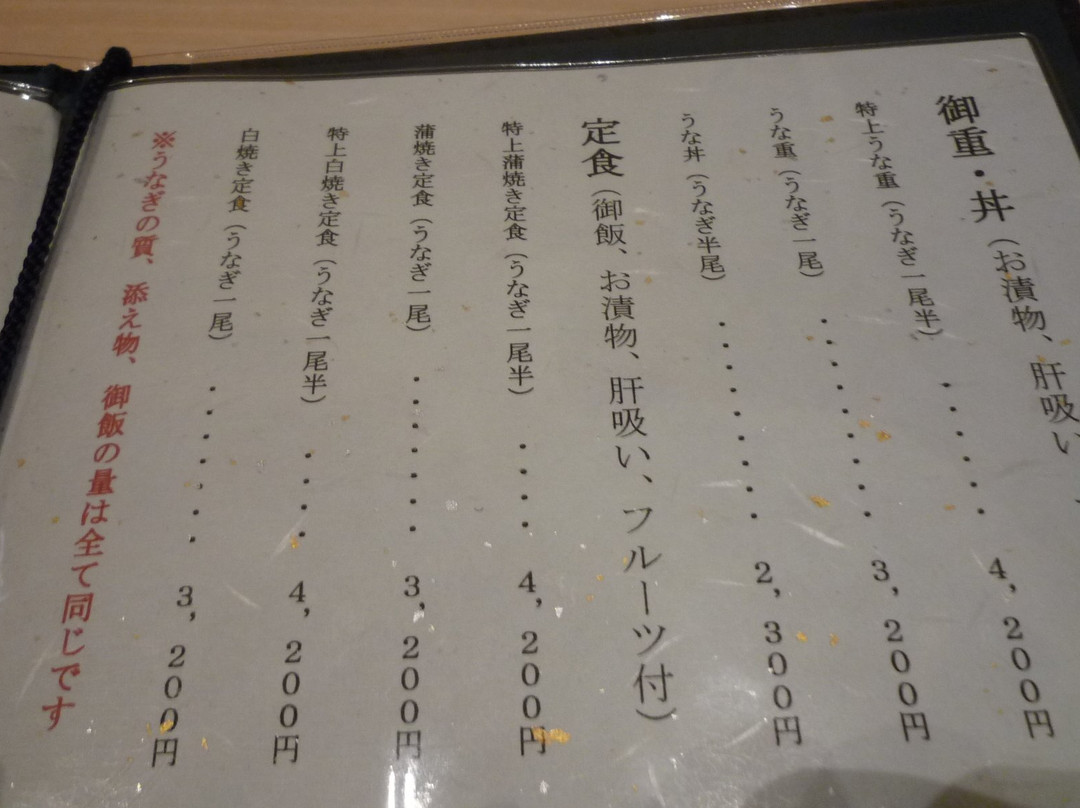 御重・丼（お漬物、肝吸い、
特上うな重（うなぎ一尾半）・・・・・・4,200円
うな重（うなぎ一尾）・・・・・・・・・3,200円
うな丼（うなぎ半尾）・・・・・・・・・2,300円
定食（御飯、お漬物、肝吸い、フルーツ付）
特上蒲焼き定食（うなぎ一尾半）・・・・4,200円
蒲焼き定食（うなぎ一尾）・・・・・・・3,200円
特上白焼き定食（うなぎ一尾半）・・・・4,200円
白焼き定食（うなぎ一尾）・・・・・・・3,200円
※うなぎの質、添え物、御飯の量は全て同じです